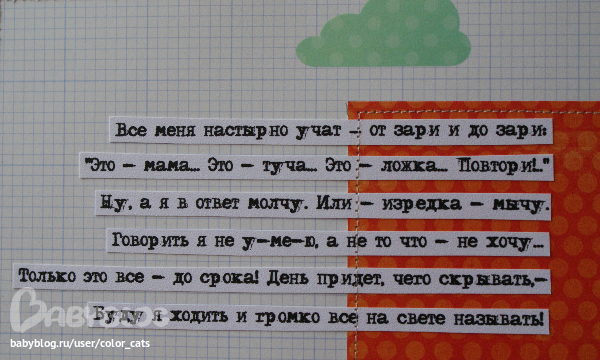 Все меня настырно учат – от зари и до зари:
"Это – мама... Это – туча... Это – ложка... Повтори!.."
Ну, а я в ответ молчу. Или – изредка – мычу.
Говорить я не у-ме-ю, а не то что – не хочу...
Только это все – до срока! День придет, чего скрывать,-
Буду я ходить и громко все на свете называть!
BABYBLOG
babyblog.ru/user/color_cats